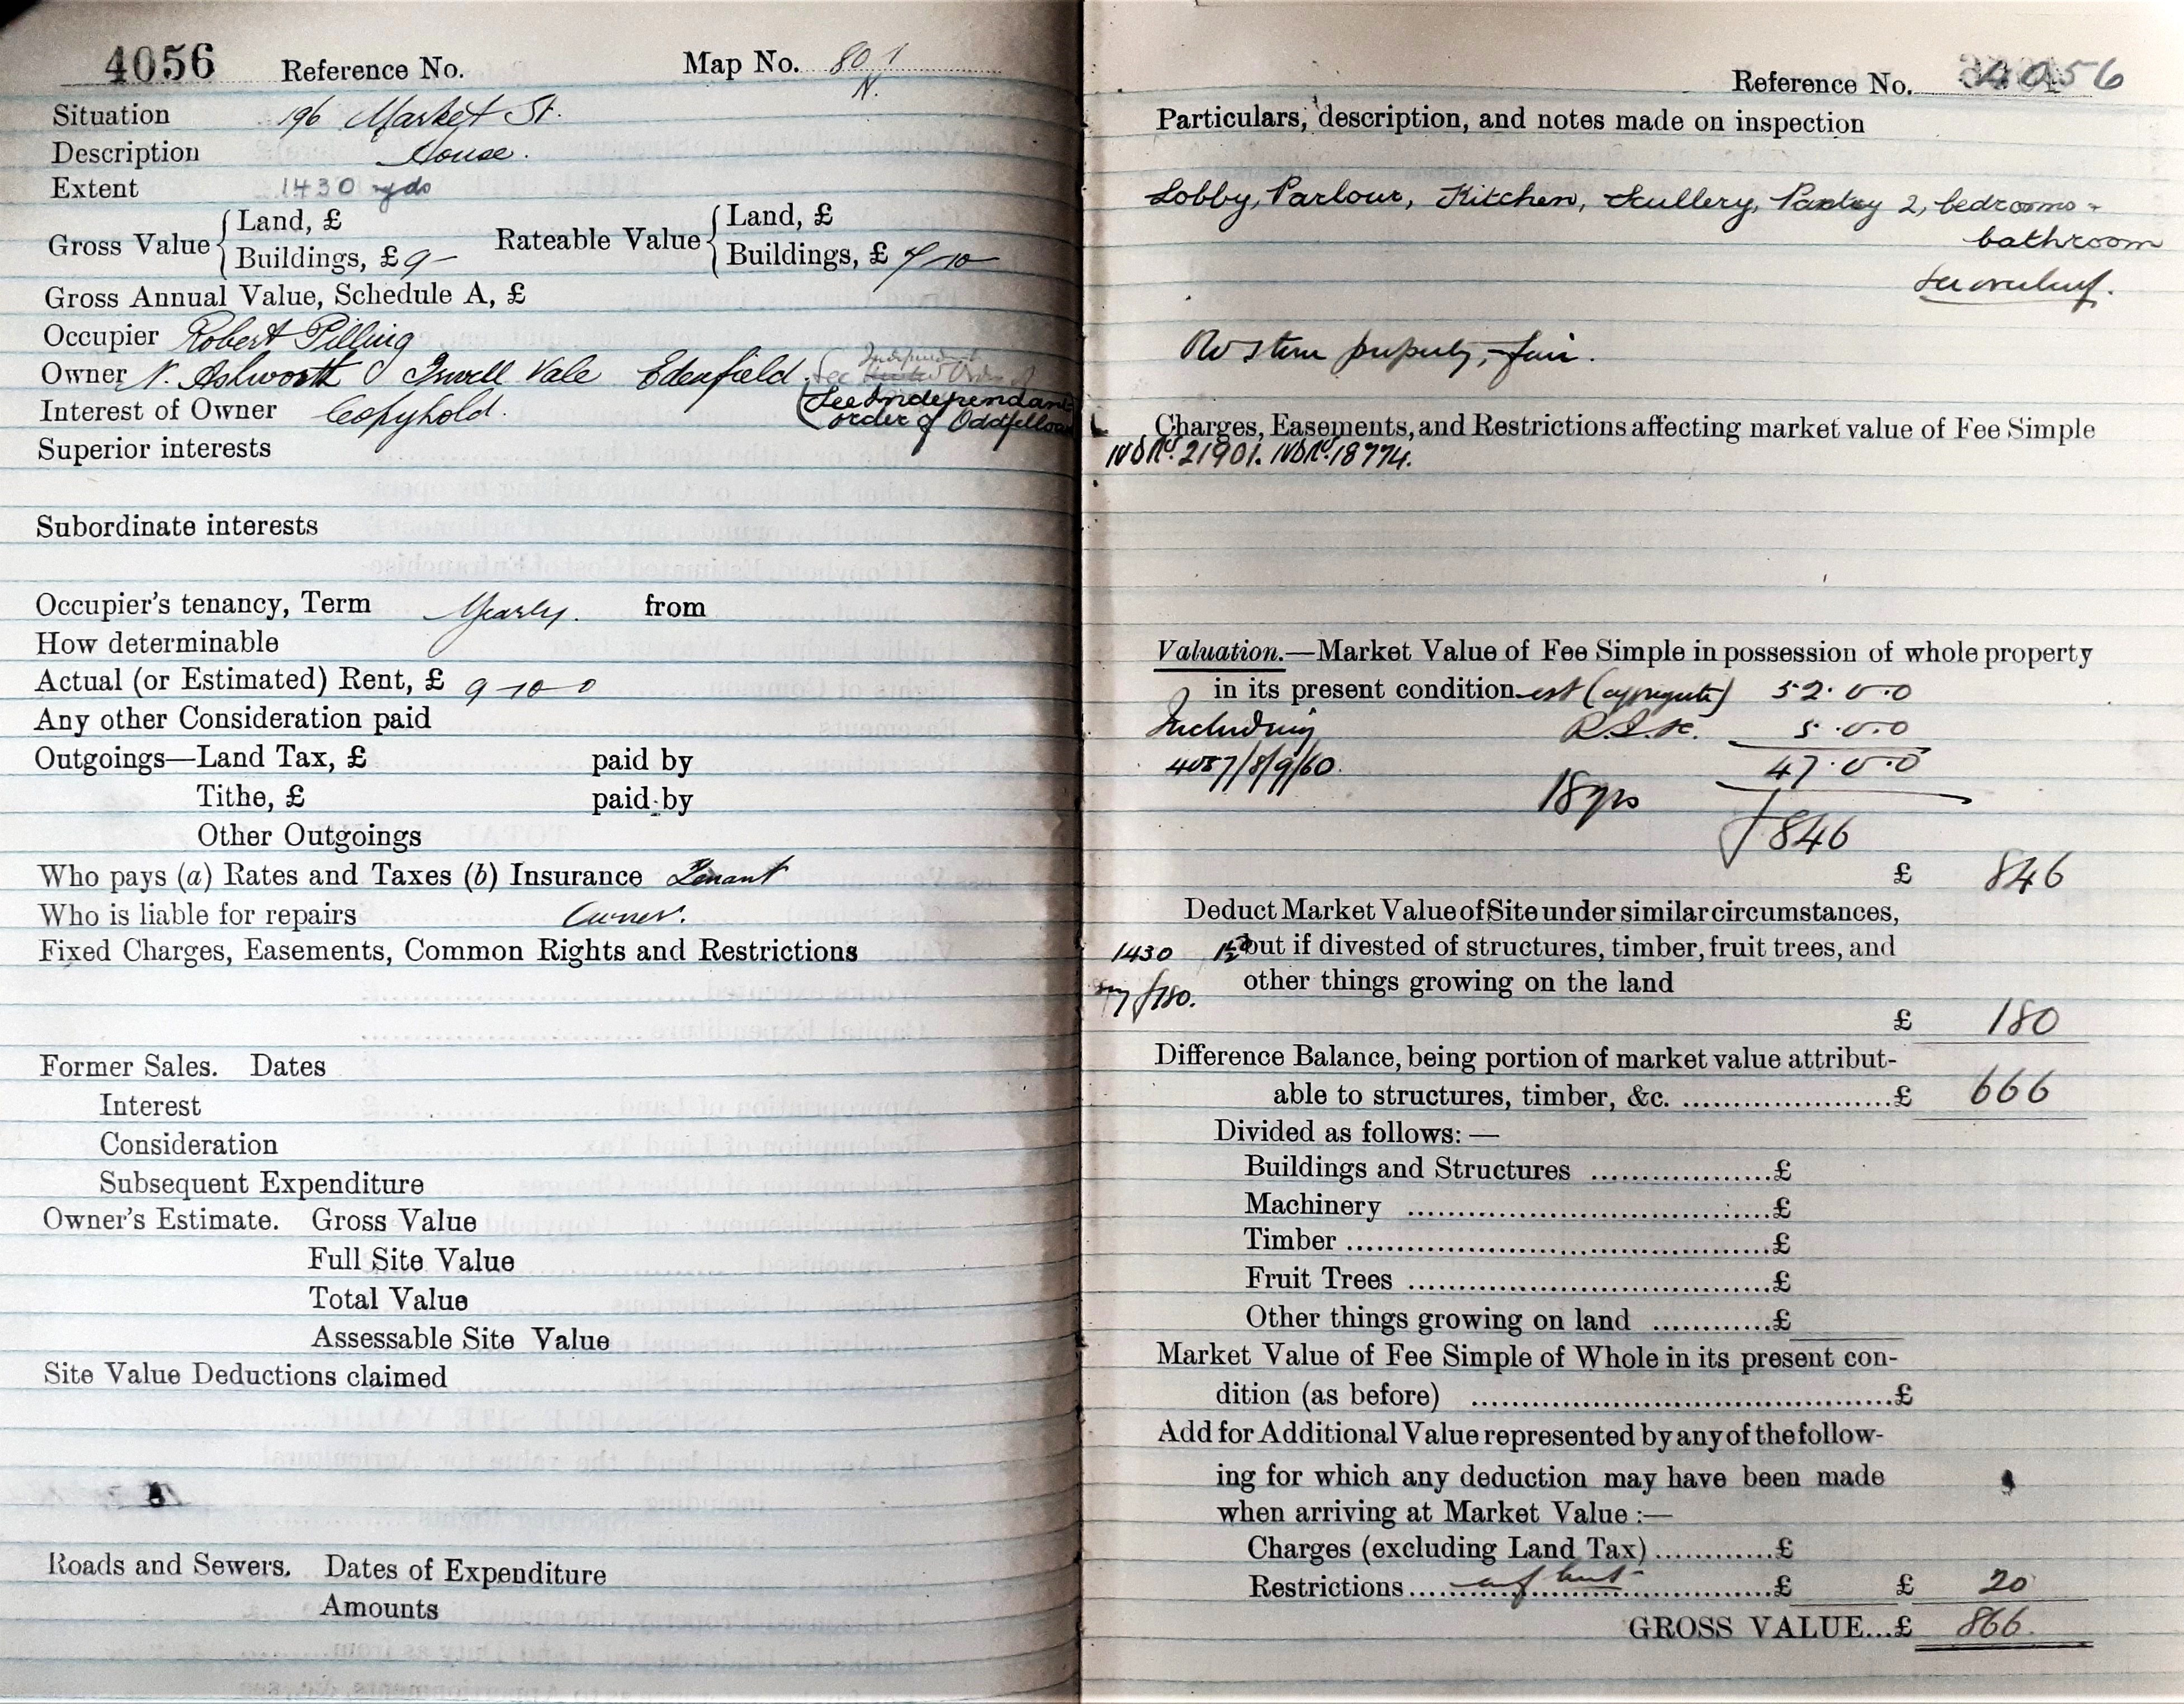 4056 Reference No. Map No. 80
N.
Situation 196 Market St.
Description House.
Extent 1430 yds
Gross Value { Land, £ Rateable Value { Land, £
Buildings, £ 9- Buildings, £
Gross Annual Value, Schedule A, £
Occupier Robert Pilling
Owner N. Ashworth Irwell Vale Edenfield.
Interest of Owner Copyhold. (See Independant
order of Oddfellows
Superior interests
Subordinate interests
Occupier's tenancy, Term Yearly. from
How determinable
Actual (or Estimated) Rent, £ 9-10-0
Any other Consideration paid
Outgoings—Land Tax, £ paid by
Tithe, £ paid by
Other Outgoings
Who pays (a) Rates and Taxes (b) Insurance Tenant
Who is liable for repairs Owner.
Fixed Charges, Easements, Common Rights and Restrictions
Former Sales. Dates
Interest
Consideration
Subsequent Expenditure
Owner's Estimate. Gross Value
Full Site Value
Total Value
Assessable Site Value
Site Value Deductions claimed
Roads and Sewers. Dates of Expenditure
Amounts
Reference No. 4056
Particulars, description, and notes made on inspection
Lobby, Parlour, Kitchen, Scullery, Pantry 2, bedrooms -
bathroom
property, fair.
Charges, Easements, and Restrictions affecting market value of Fee Simple
21901. 18774.
Valuation.—Market Value of Fee Simple in possession of whole property
in its present condition est (aggregate) 52.0.0
Including 5.0.0
4057/8/9/60. 47.0.0
18 yrs
£846
£ 846
Deduct Market Value of Site under similar circumstances,
1430 but if divested of structures, timber, fruit trees, and
other things growing on the land
say £180.
£ 180
Difference Balance, being portion of market value attribut-
able to structures, timber, &c. ......................£ 666
Divided as follows:—
Buildings and Structures ...................£
Machinery .......................................£
Timber .............................................£
Fruit Trees .......................................£
Other things growing on land ............£
Market Value of Fee Simple of Whole in its present con-
dition (as before) .............................................£
Add for Additional Value represented by any of the follow-
ing for which any deduction may have been made
when arriving at Market Value :—
Charges (excluding Land Tax)............£
Restrictions.......................................£ £ 20
GROSS VALUE...£ 866.